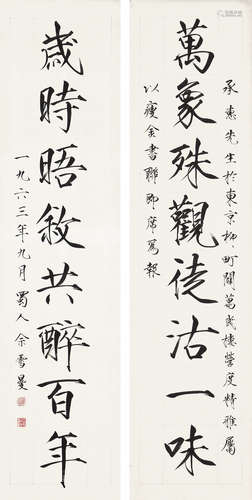 承惠先生於東京柳町闢萬民樓營度精雅屬
萬象殊觀徒沽一味
以瘦金書聯即席寫報
歲時晤敘共醉百年
一九六三年九月蜀人余雪曼